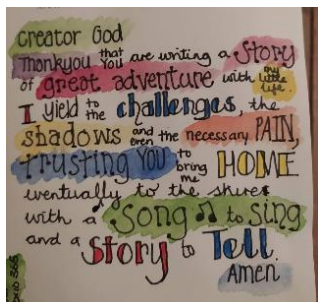 Creator God
Thankyou that You are writing a Story
of great adventure with my little life.
I yield to the challenges, the
shadows and even the necessary PAIN,
trusting YOU to bring me HOME
eventually to the shires
with a Song to sing
and a Story to Tell.
Amen